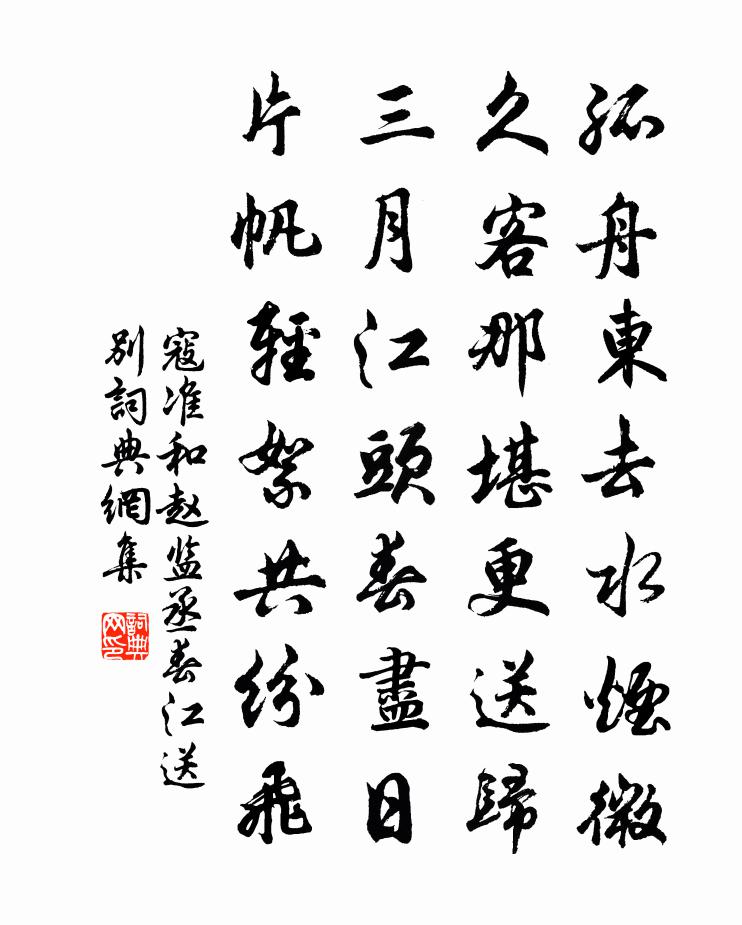 孤舟東去水煙微
久客那堪更送歸
三月江頭春盡日
片帆輕絮共紛飛
寇准和赵监丞春江送
别詞典網集
詞典
网印